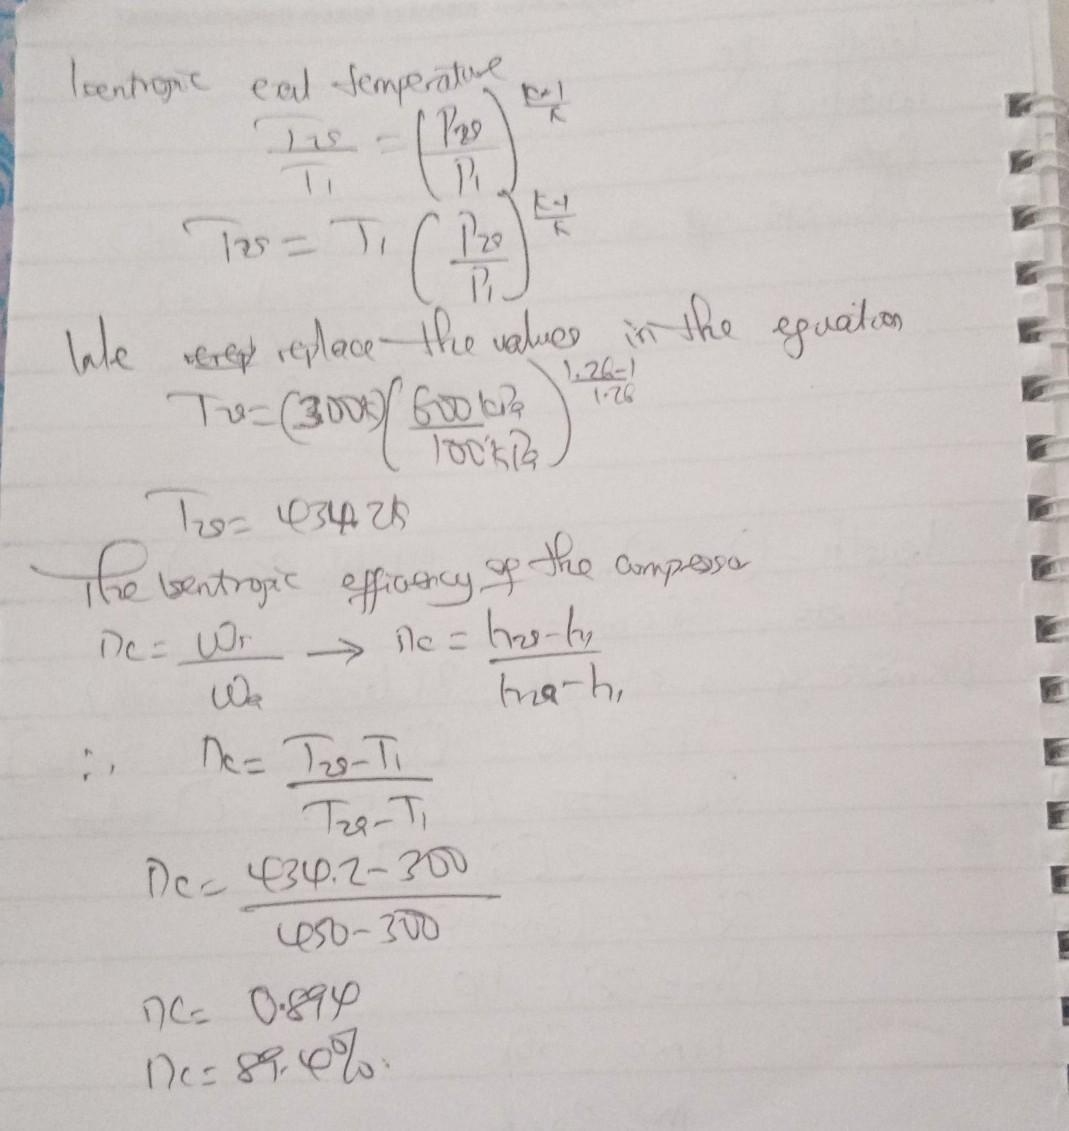 Isentropic exit temperature
T2s/T1 = (P2s/P1)^(k-1/k)
T2s = T1 (P2s/P1)^(k-1/k)
We replace the values in the equation
T2s = (300K)(600kPa/100kPa)^(1.26-1/1.26)
T2s = 434.2K
The isentropic efficency of the compressor
ηc = Wr/Wa → ηc = h2s-h1/h2a-h1
∴ ηc = T2s-T1/T2a-T1
ηc = 434.2-300/450-300
ηc = 0.894
ηc = 89.4%.